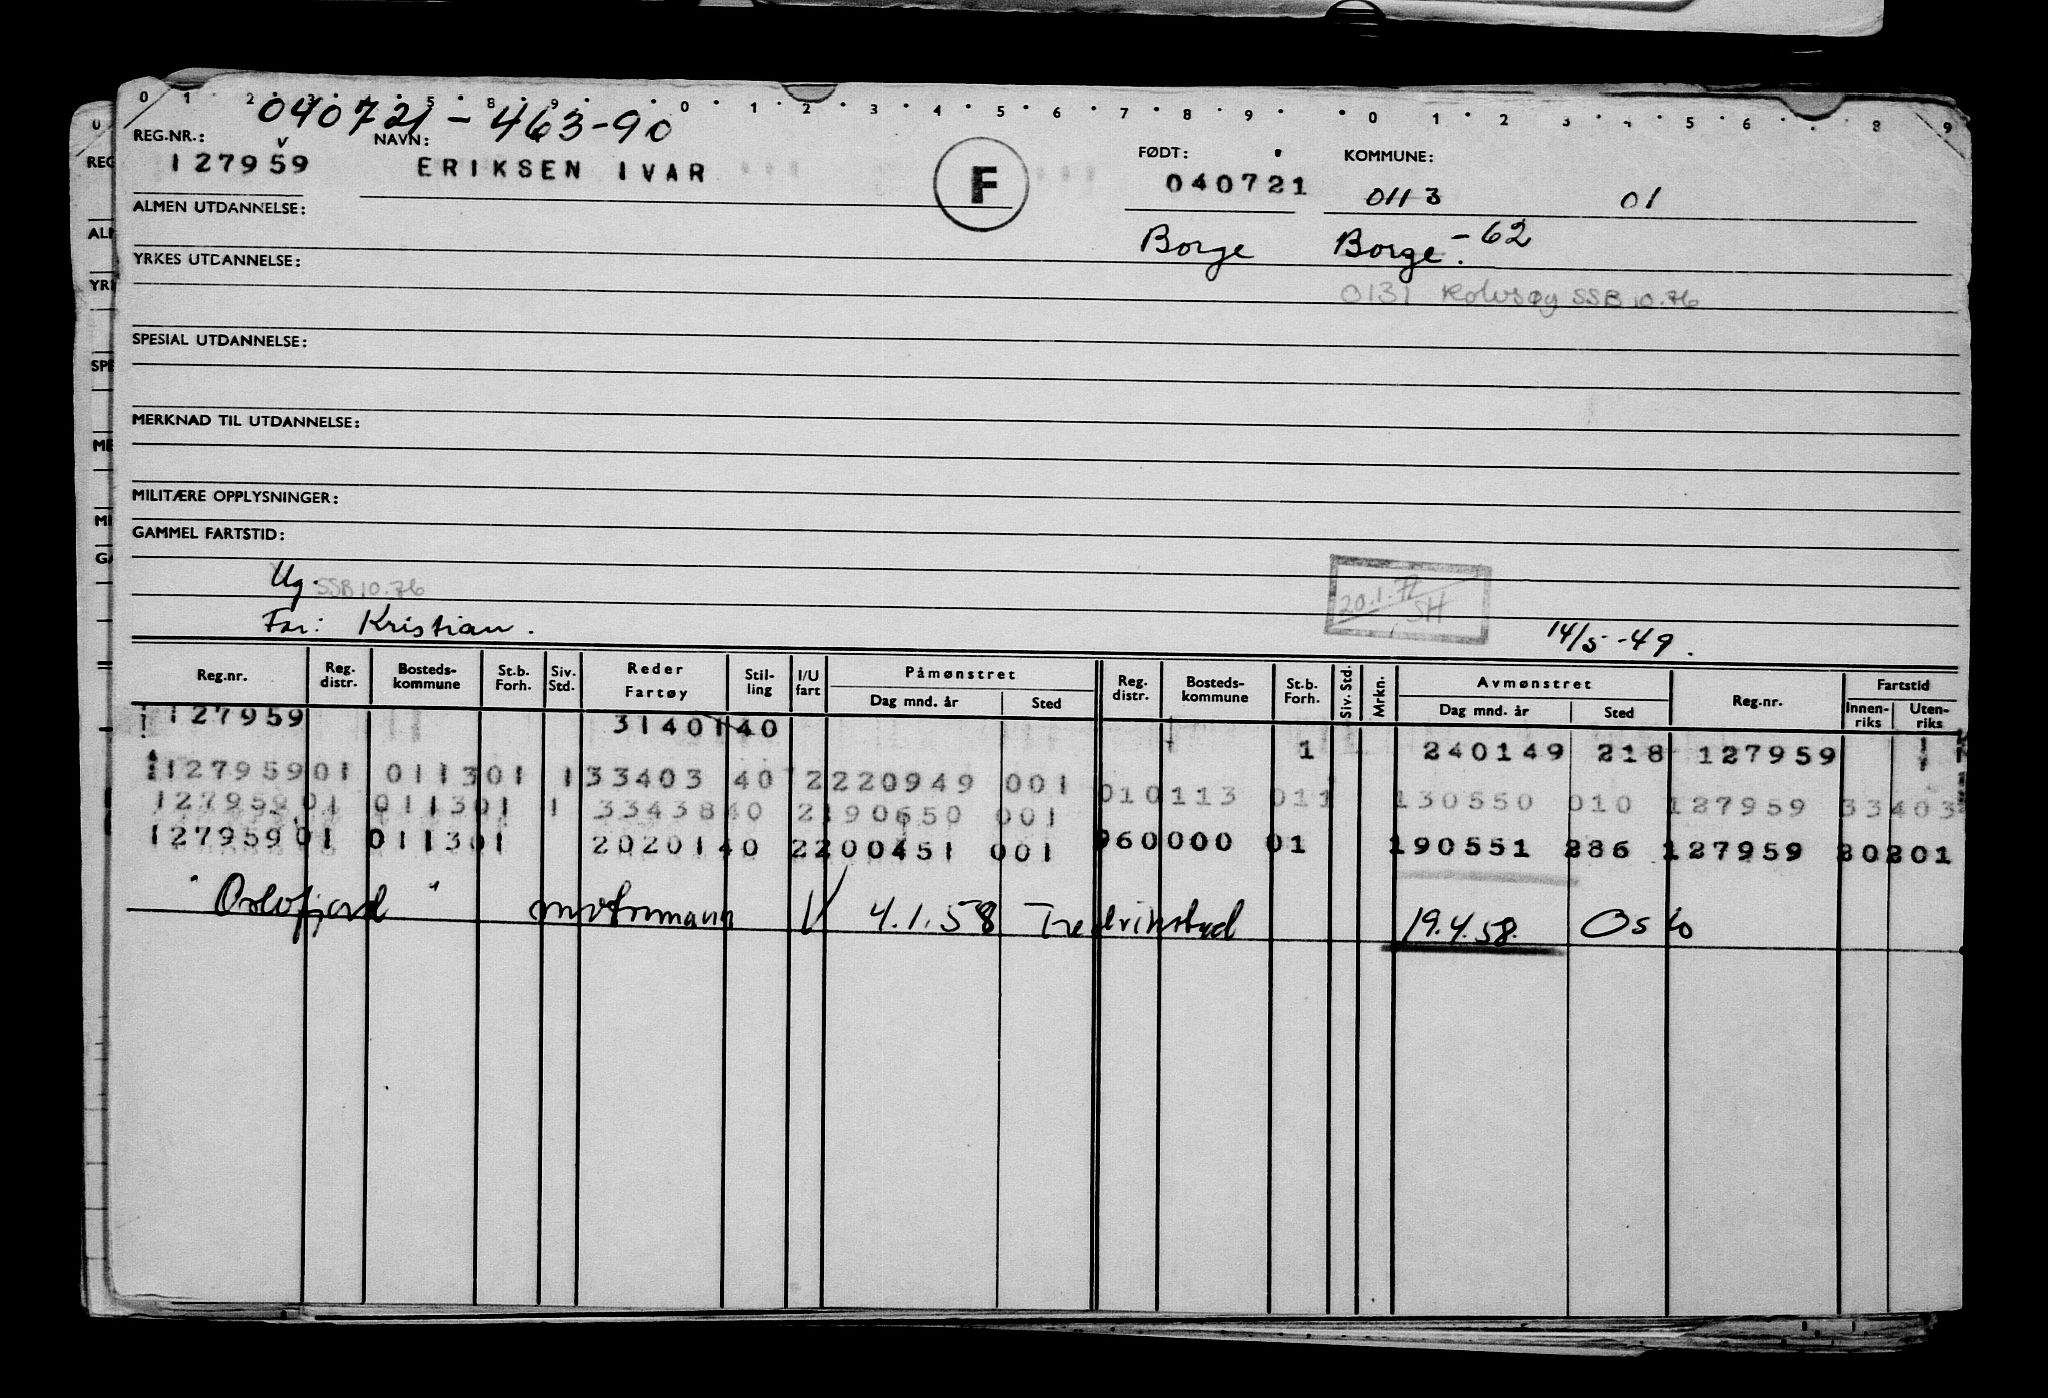 0 1 2 3 4 5 8 9 0 1 2 3 4 5 6 7 8 9 0 1 2 3 4 5 6 8 9
040721-463-90
REG.NR.: NAVN: FØDT: KOMMUNE:
127959 ERIKSEN IVAR F 040721 0113 01
ALMEN UTDANNELSE:
Borge Borge.-62
YRKES UTDANNELSE:
0131 Rolvsøy SSB 10.76
SPESIAL UTDANNELSE:
MERKNAD TIL UTDANNELSE:
MILITÆRE OPPLYSNINGER:
GAMMEL FARTSTID:
Ug. SSB 10.76
20.1.77 SH
Far: Kristian. 14/5-49.
Reg.nr. Reg. distr. Bosteds-kommune St.b. Forh. Siv. Std. Reder Fartøy Stil-ling I/U fart Påmønstret Dag mnd. år Sted Reg. distr. Bosteds-kommune St.b. Forh. Siv. Std. Mrkn. Avmønstret Dag mnd. år Sted Reg.nr. Fartstid Innen-riks Uten-riks
127959 3140140 1 240149 218 127959
127959 01 0113 01 1 33403 40 2 220949 001 01 0113 011 130550 010 127959 33403
127959 01 0113 01 1 33438 40 2 190650 001
127959 01 0113 01 20201 40 2 200451 001 960000 01 190551 286 127959 20201
"Oslofjord" motormann U 4.1.58 Fredrikstad 19.4.58. Oslo